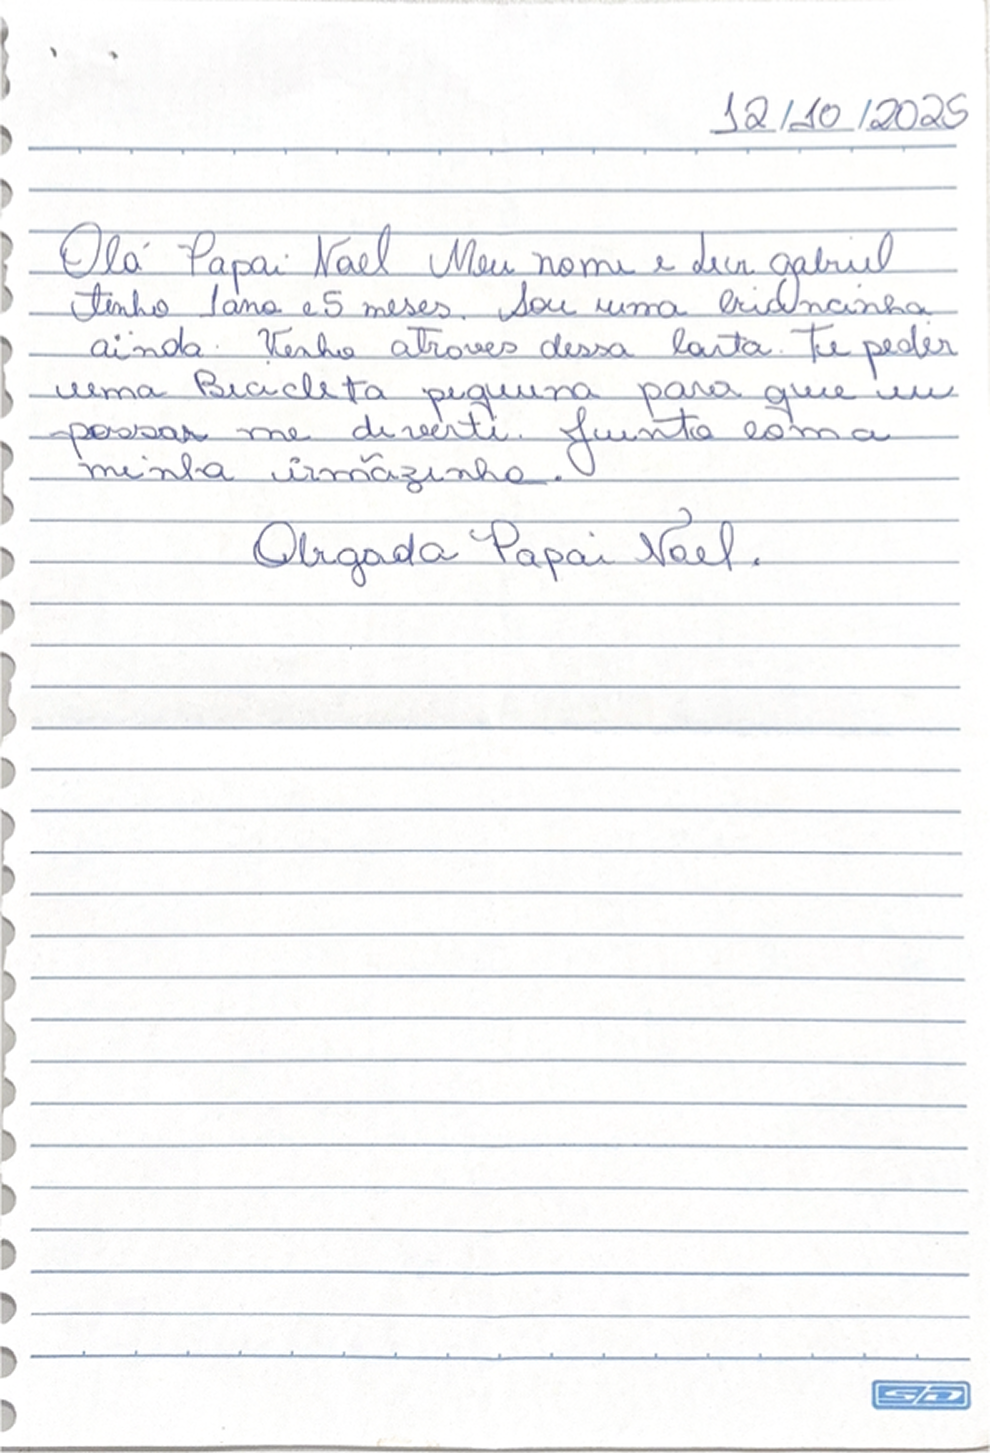 12/10/2025
Olá Papai Nael Meu nome e Luiz gabriel
tenho 1 ano e 5 meses. Sou uma criancinha
ainda. Venho atroves dessa carta. Te peder
uma Bicicleta pequena para que eu
possar me diverti. Junto com a
minha irmãzinha.
Obrgada Papai Nael.
SD